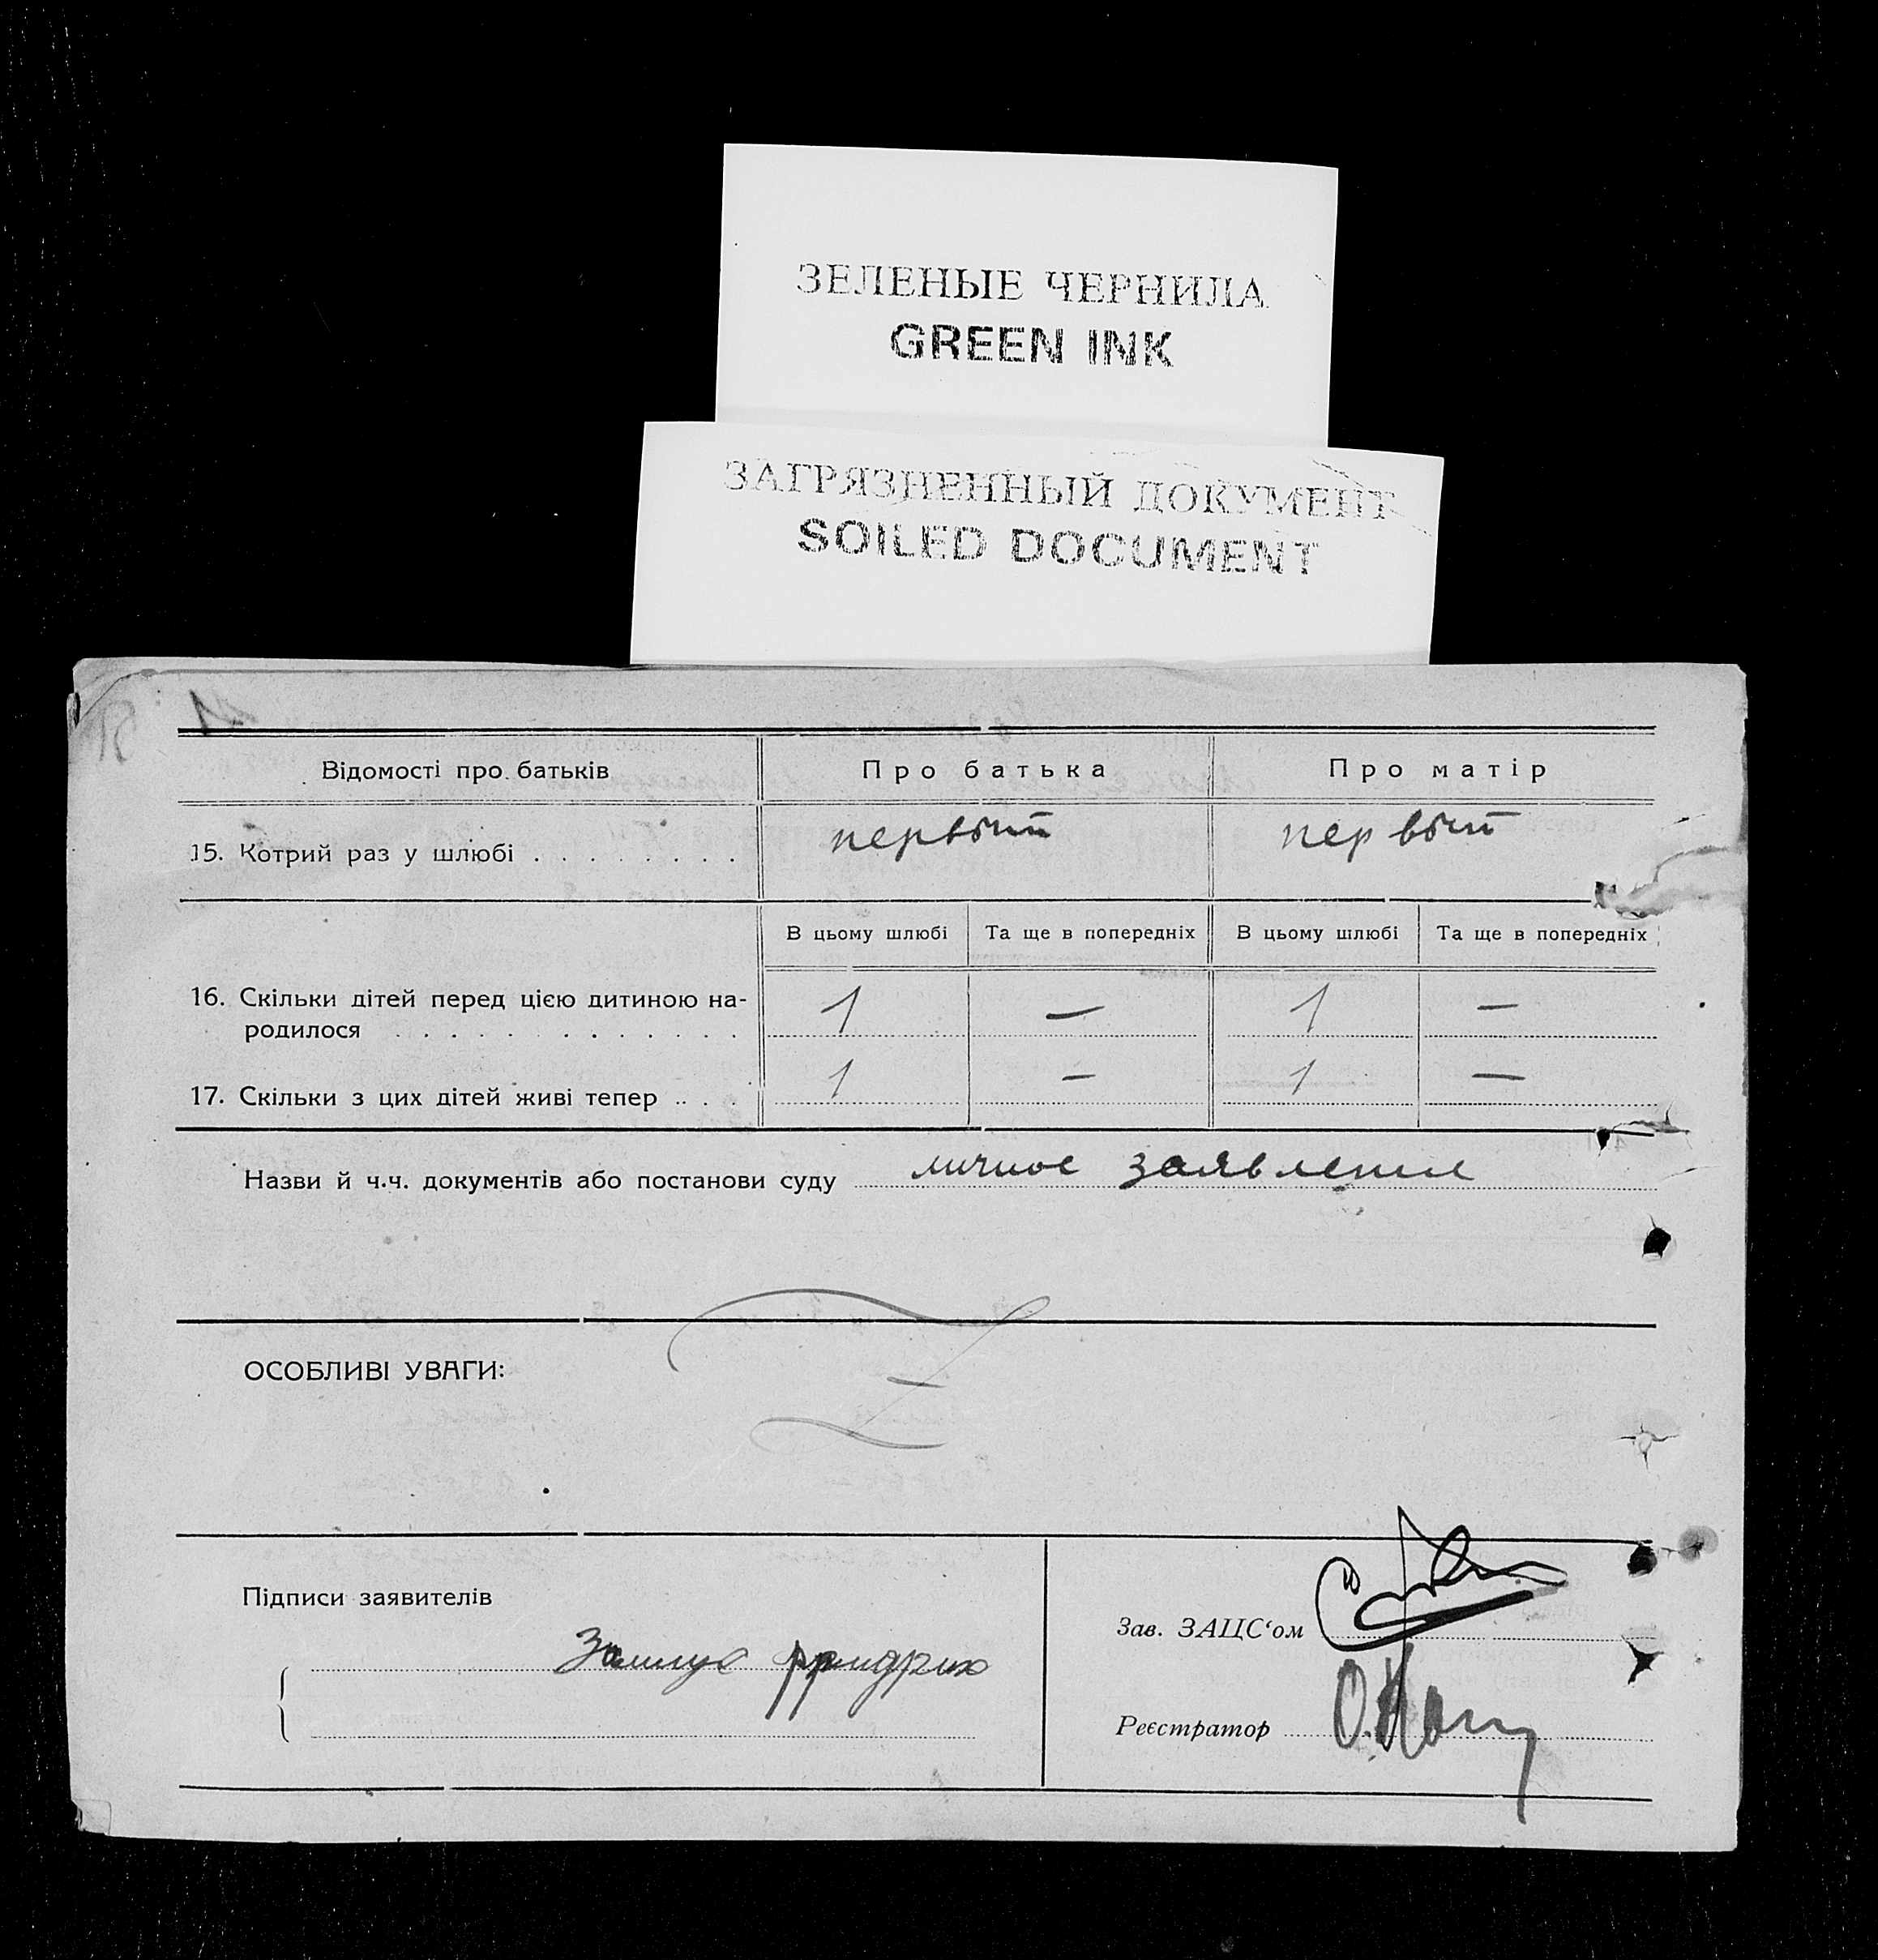 ЗЕЛЕНЫЕ ЧЕРНИЛА
GREEN INK
ЗАГРЯЗНЕННЫЙ ДОКУМЕНТ
SOILED DOCUMENT
Відомості про батьків Про батька Про матір
15. Котрий раз у шлюбі . . . . . . . . первый первый
В цьому шлюбі Та ще в попередніх В цьому шлюбі Та ще в попередніх
16. Скільки дітей перед цією дитиною на-
родилося . . . . . . . . . . . . . 1 — 1 —
17. Скільки з цих дітей живі тепер . . . . 1 — 1 —
Назви й ч.ч. документів або постанови суду личное заявление
ОСОБЛИВІ УВАГИ:
Підписи заявителів
Зав. ЗАЦС‘ом
Фридрих
Реєстратор